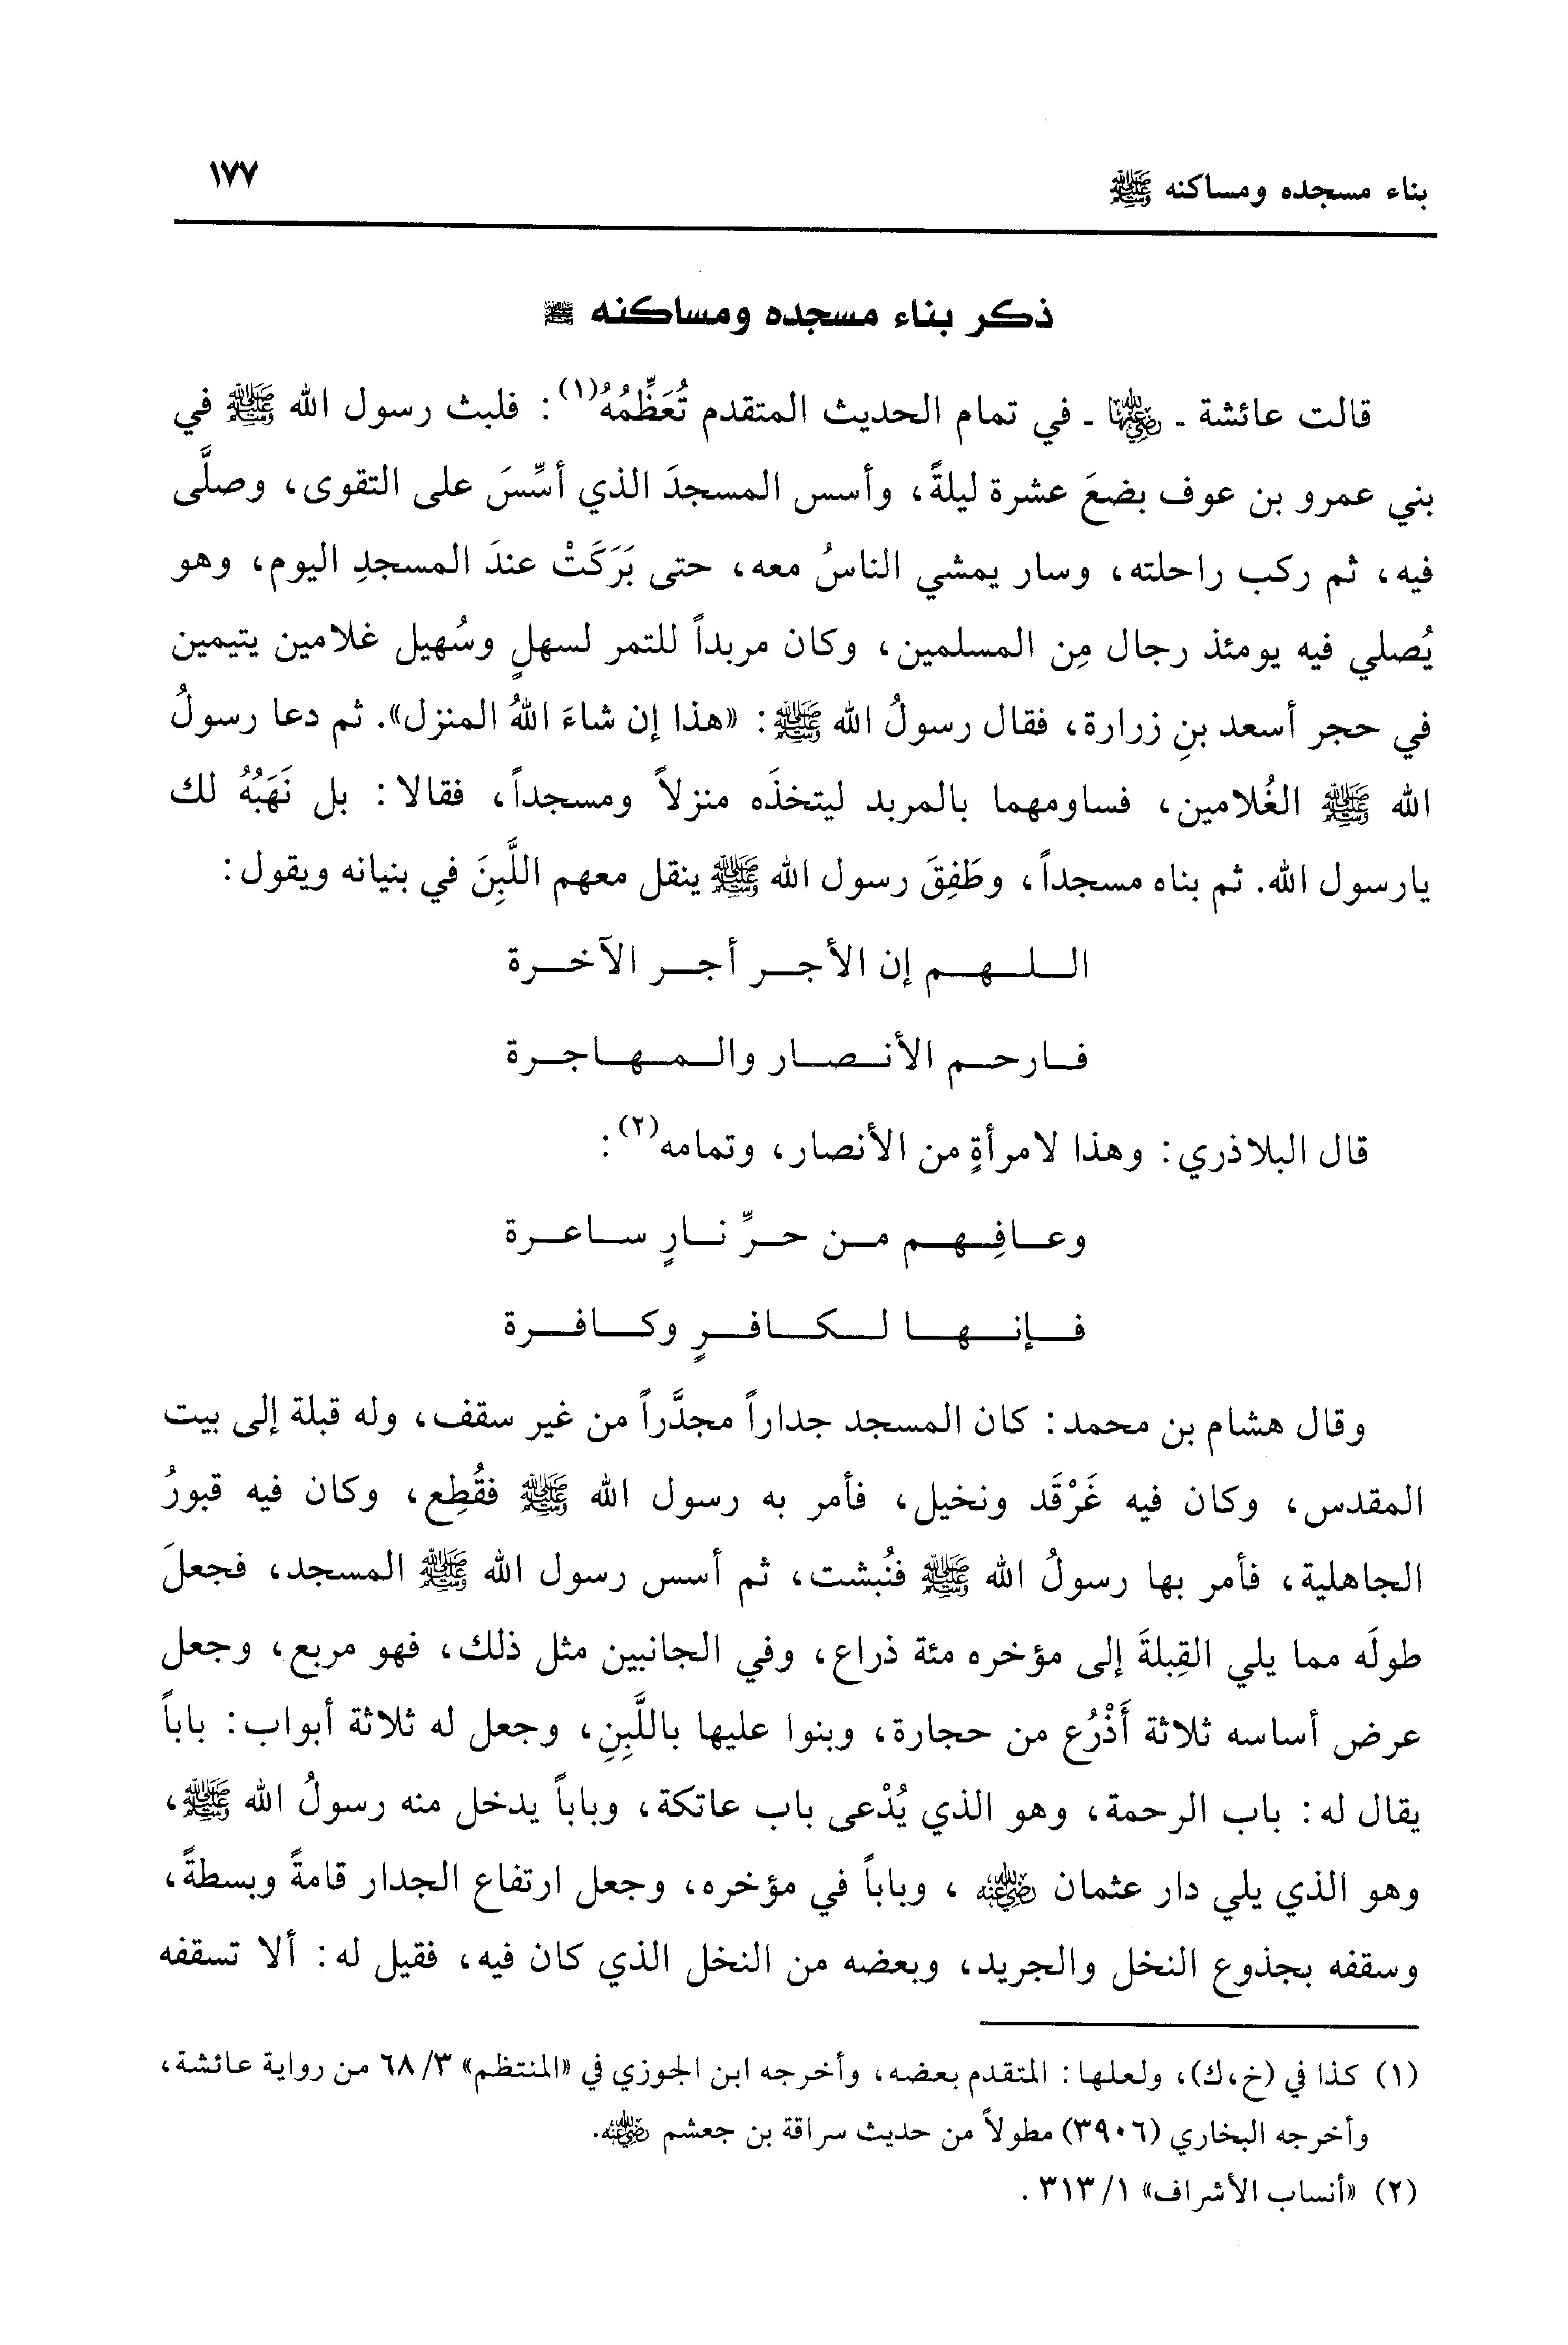 بناء مسجده ومساكنه ﷺ
١٧٧
ذكر بناء مسجده ومساكنه ﷺ
قالت عائشة ـ رضي الله عنها ـ في تمام الحديث المتقدم تُعَظِّمُهُ(١): فلبث رسول الله ﷺ في
بني عمرو بن عوف بضعَ عشرة ليلةً، وأسس المسجدَ الذي أسِّسَ على التقوى، وصلَّى
فيه، ثم ركب راحلته، وسار يمشي الناسُ معه، حتى بَرَكَتْ عندَ المسجدِ اليوم، وهو
يُصلي فيه يومئذ رجال مِن المسلمين، وكان مربداً للتمر لسهلٍ وسُهيل غلامين يتيمين
في حجر أسعد بنِ زرارة، فقال رسولُ الله ﷺ: «هذا إن شاءَ اللهُ المنزل». ثم دعا رسولُ
الله ﷺ الغُلامين، فساومهما بالمربد ليتخذَه منزلاً ومسجداً، فقالا: بل نَهَبُهُ لك
يارسول الله. ثم بناه مسجداً، وطَفِقَ رسول الله ﷺ ينقل معهم اللَّبِنَ في بنيانه ويقول:
الـلـهـم إن الأجـر أجـر الآخـرة
فـارحـم الأنـصـار والـمـهـاجـرة
قال البلاذري: وهذا لامرأةٍ من الأنصار، وتمامه(٢):
وعـافِـهـم مـن حـرِّ نـارٍ سـاعـرة
فـإنـهـا لـكـافـرٍ وكـافـرة
وقال هشام بن محمد: كان المسجد جداراً مجدَّراً من غير سقف، وله قبلة إلى بيت
المقدس، وكان فيه غَرْقَد ونخيل، فأمر به رسول الله ﷺ فقُطِع، وكان فيه قبورُ
الجاهلية، فأمر بها رسولُ الله ﷺ فنُبشت، ثم أسس رسول الله ﷺ المسجد، فجعلَ
طولَه مما يلي القِبلةَ إلى مؤخره مئة ذراع، وفي الجانبين مثل ذلك، فهو مربع، وجعل
عرض أساسه ثلاثة أَذْرُع من حجارة، وبنوا عليها باللَّبِنِ، وجعل له ثلاثة أبواب: باباً
يقال له: باب الرحمة، وهو الذي يُدْعى باب عاتكة، وباباً يدخل منه رسولُ الله ﷺ،
وهو الذي يلي دار عثمان رضي الله عنه، وباباً في مؤخره، وجعل ارتفاع الجدار قامةً وبسطةً،
وسقفه بجذوع النخل والجريد، وبعضه من النخل الذي كان فيه، فقيل له: ألا تسقفه
(١) كذا في (خ،ك)، ولعلها: المتقدم بعضه، وأخرجه ابن الجوزي في «المنتظم» ٣/ ٦٨ من رواية عائشة،
وأخرجه البخاري (٣٩٠٦) مطولاً من حديث سراقة بن جعشم رضي الله عنه.
(٢) «أنساب الأشراف» ١/ ٣١٣.